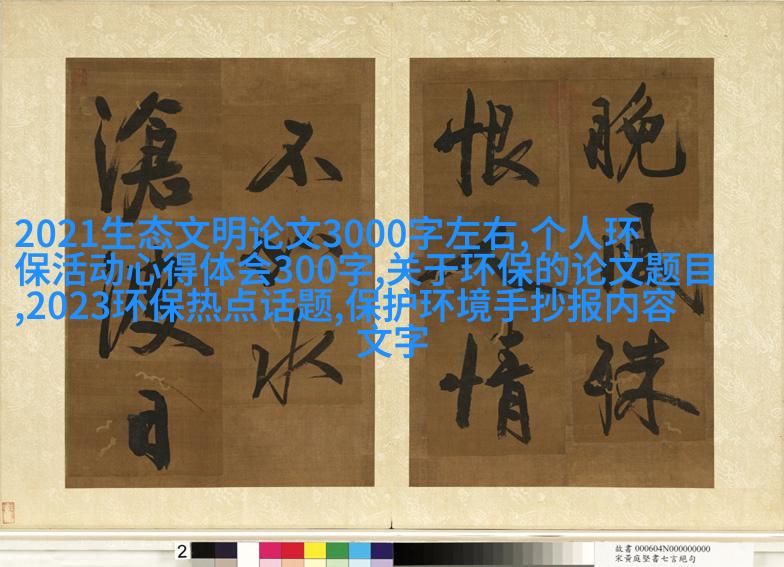 晚風殊
恨 情
不 水
滄 日
2021生态文明论文3000字左右,个人环
保活动心得体会300字,关于环保的论文题目
,2023环保热点话题,保护环境手抄报内容
文字
2
故書 000604N000000000
宋黃庭堅書七言絕句